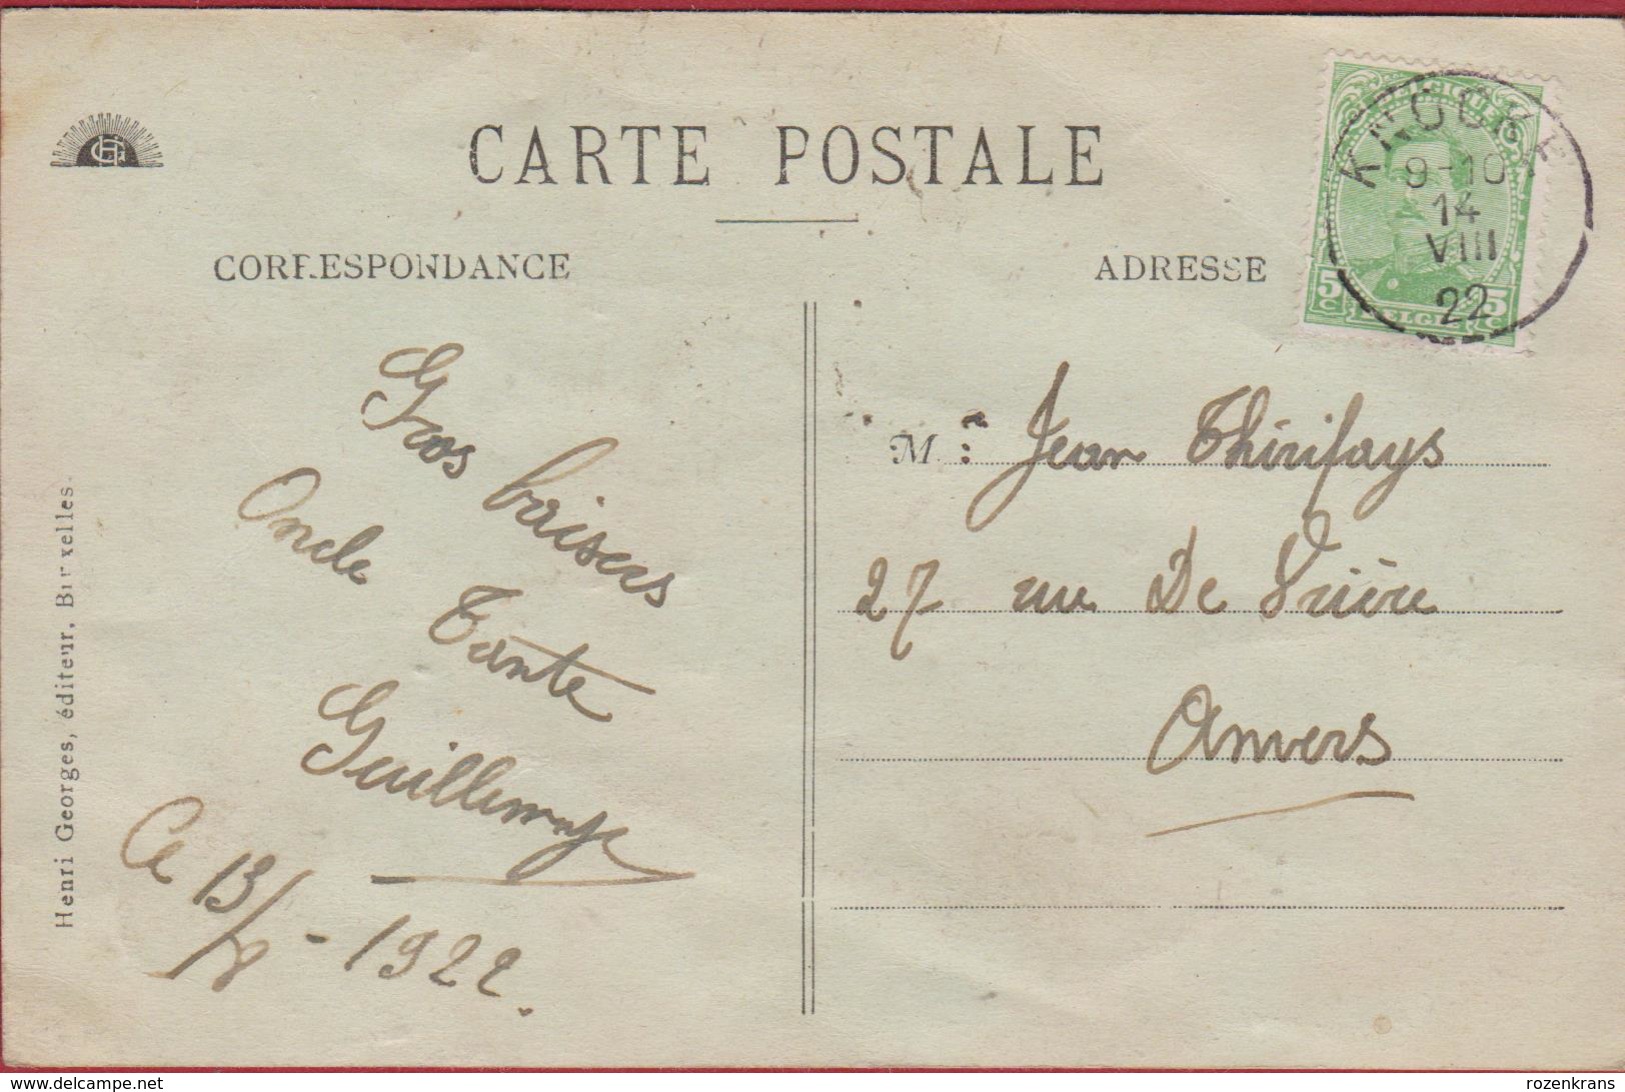 CARTE POSTALE
CORRESPONDANCE
ADRESSE
BELGIQUE
KNOCKE
9-10
14
VIII
22
5c BELGIE 5c
HG
Gros baisers
Oncle
Tante
Ce 13/8 - 1922.
M Jean Thirifays
27 rue De
Anvers
Henri Georges, éditeur, Bruxelles.
www.delcampe.net
rozenkrans